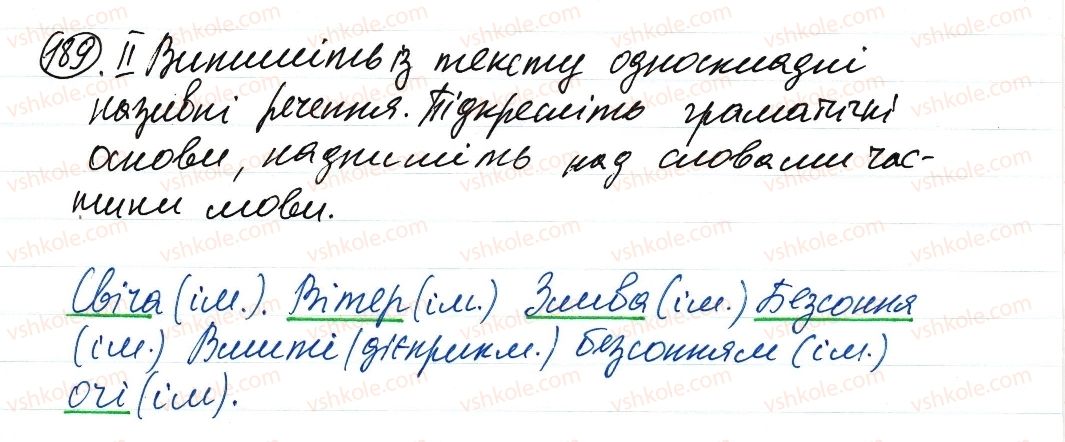 189. II Випишіть із тексту односкладні
називні речення. Підкресліть граматичні
основи, надпишіть над словами час-
тини мови.
Свіча (ім.). Вітер (ім.) Злива (ім.) Безсоння
(ім.) Вмиті (дієприкм.) безсонням (ім.)
очі (ім).
vshkole.com